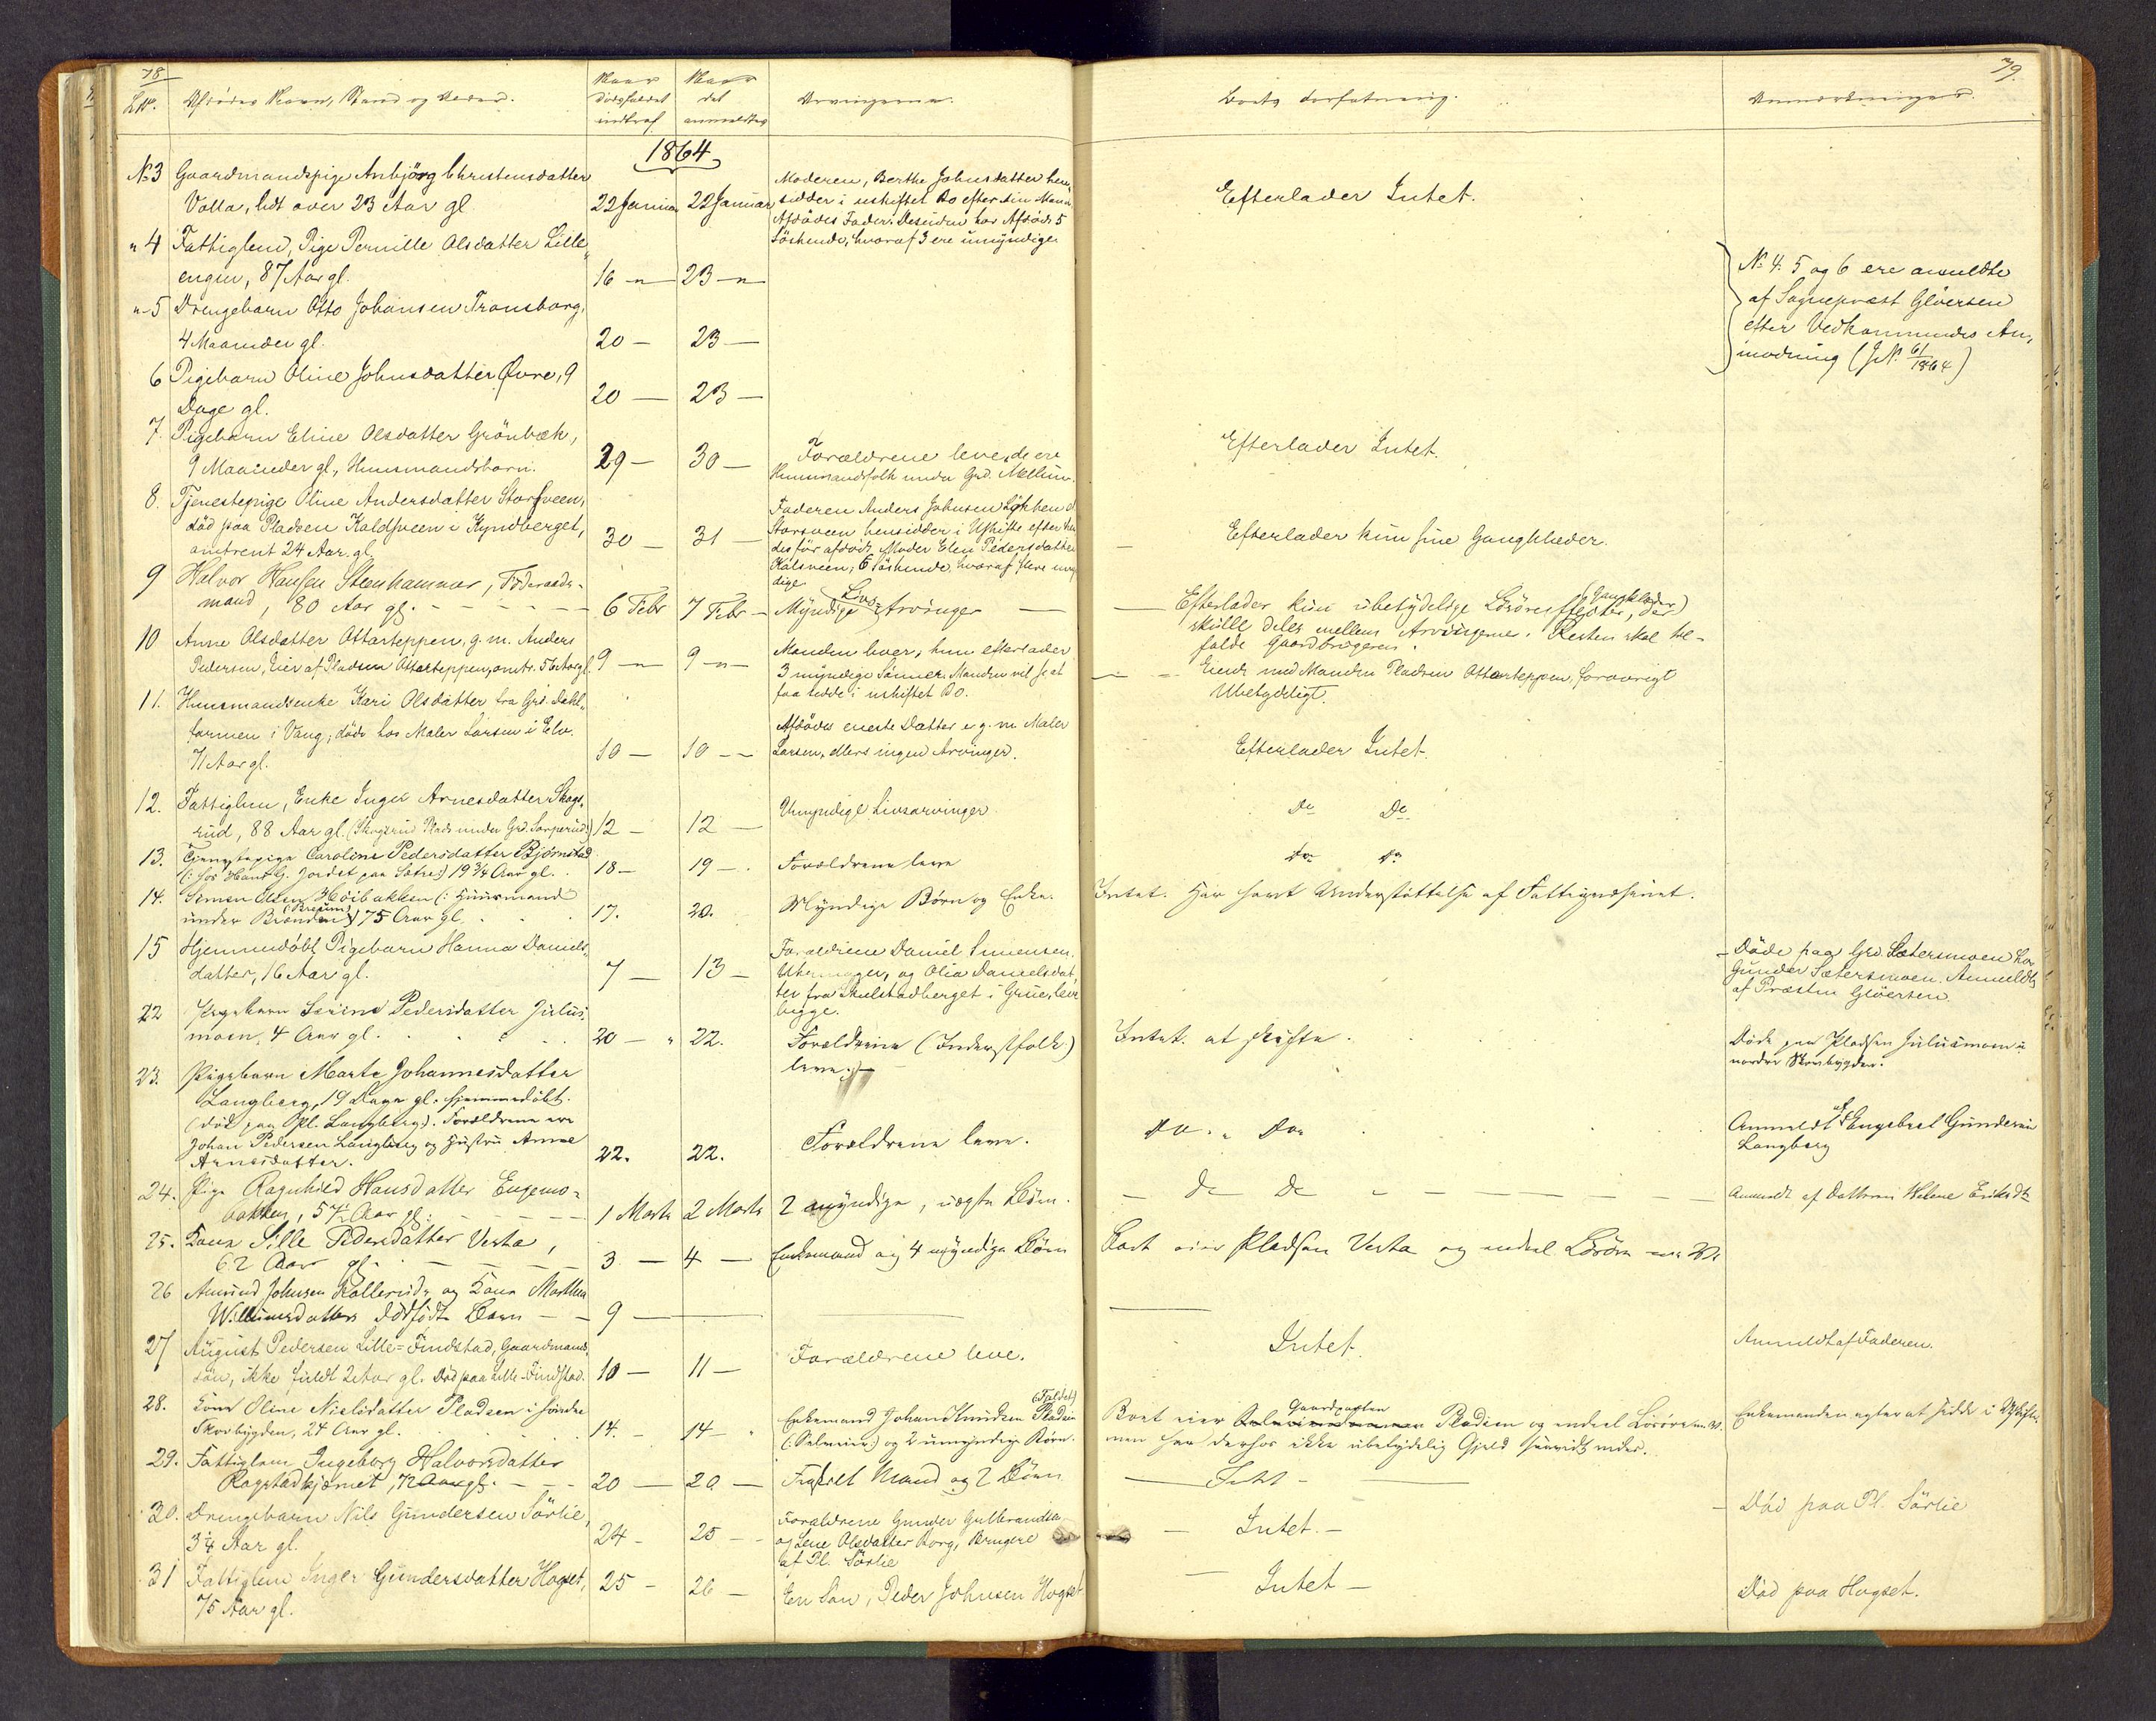 78
79.
LNº. Afdödes Navn, Stand og Alder.
Naar Dödsfaldet indtraf
Naar det anmeldtes
Arvingerne.
Boets Forfatning.
Anmærkninger.
1864
Nº 3 Gaardmandspige Anbjörg Christensdatter
Volla, lidt over 23 Aar gl
22 Januar 22 Januar
Moderen, Berthe Johnsdatter hen-
sidder i uskiftet Bo efter sin Mand
Afdödes Fader. Desuden har Afdöde 5
Söskende, hvoraf 3 ere umyndige
Efterlader Intet.
" 4 Fattiglem, Pige Pernille Olsdatter Lille
engen, 87 Aar gl.
16 - " - 23 - " -
Nº 4. 5 og 6 ere anmeldte
af Sognepræst Glöersen
efter Vedkommendes An-
modning (JNº 61/1864)
" 5 Drengebarn Otto Johansen Transborg,
4 Maaneder gl.
20 - 23 -
6 Pigebarn Oline Johnsdatter Øvre, 9
Dage gl.
20 - 23 -
7. Pigebarn Eline Olsdatter Grönbæk,
9 Maaneder gl., Huusmandsbarn.
29 - 30 -
Forældrene leve, de ere
Huusmandsfolk under Grd. Mellum.
Efterlader Intet.
8. Tjenestepige Oline Andersdatter Storsveen,
död paa Pladsen Kaldsveen i Kyndberget,
omtrent 24 Aar. gl.
30 - 31 -
Faderen Anders Johnsen Lökken
Storsveen hensidder i Uskifte efter hen
des för afdöde Moder Eleu Pedersdatter
Kalsveen; 6 Söskende, hvoraf flere umyn
dige
Efterlader kun sine Gangklæder.
9 Halvor Hansen Steenhammer, Föderaads-
mand, 80 Aar gl.
6 Febr 7 Febr -
Myndige Livs Arvinger
Efterlader kun ubetydelige Lösöreeffecter, (Gangklæder) der
skulle deles mellem Arvingerne. Resten skal til-
falde Gaardbrugeren.
10 Anne Olsdatter Ottarteppen, g. m. Anders
Pedersen, Eier af Pladsen Ottarteppen, omtr. 56 Aar gl.
9 - " - 9 - " -
Manden lever; hun efterlader
3 myndige Sönner. Manden vil
i uskiftet Bo.
Eiende med Manden Pladsen Ottarteppen, forøvrigt
Ubetydeligt.
11. Huusmandsenke Kari Olsdatter fra Grd. Dahl-
farmen i Vang; döde hos Maler Larsen i Elv.
71 Aar gl.
10 - 10 - -
Afdödes eneste Datter er g. m. Maler
Larsen, ellers ingen Arvinger.
Efterlader Intet
12. Fattiglem, Enke Inger Arnesdatter Skogs-
rud, 88 Aar gl. (Skogsrud Plads under Grd. Sorperud.)
12 - 12 -
Umyndige Livsarvinger
Do Do.
13. Tjenestepige Caroline Pedersdatter Björnstad
(: hos Hans G. Jordet paa Sætre:) 19 3/4 Aar gl.
18 - 19 -
Forældrene leve
Do Do
14. Simen Olsen Höibakken (: Huusmand
under Brænden (Breum) :) 75 Aar gl
17. 20.
Myndige Börn og Enke.
Intet. Har havt Understöttelse af Fattigvæsenet.
15 Hjemmedöbt Pigebarn Hanna Daniels-
datter, 16 Aar gl.
7 - 13 -
Forældrene Daniel Simensen
Uhrmager, og Olia Danielsdat
ter fra Skulstadberget i Grue, leve
begge.
Döde paa Grd Sætersmoen hos
Gunder Sætersmoen. Anmeldt
af Præsten Glöersen
22 Pigebarn Karine Pedersdatter Julius-
moen, 4 Aar gl.
20 - " 22.
Forældrene (Inderstfolk)
leve.
Intet at skifte.
Döde paa Pladsen Juliusmoen i
nordre Skovbygden.
23. Pigebarn Marte Johannesdatter
Langberg, 19 Dage gl. hjemmedöbt.
(död paa Pl. Langberg). Forældrene ere
Johan Pedersen Langberg og Hustru Anne
Arnesdatter.
22. 22.
Forældrene leve.
Do. " Do.
Anmeldt af Engebret Gundersen
Langberg
24. Pige Ragnhild Hansdatter Engemo-
bakken, 57½ Aar gl:
1 Marts 2 Marts
2 myndige, uægte Börn.
Do Do
Anmeldt af Datteren Helene Eriksdtr
25. Kone Sille Pedersdatter Vesta,
62 Aar gl.
3 - 4 -
Enkemand og 4 myndige Börn
Boet eier Pladsen Vesta og endeel Lösöre m. V.
26 Amund Johnsen Kollerud, og Kone Marthea
Willumsdatters dödfödte Barn
9
27 August Pedersen Lille-Findstad, Gaardmands
sön, ikke fuldt 2 Aar gl. Död paa Lille-Findstad.
10 - 11 -
Forældrene leve.
Intet.
Anmeldt af Faderen.
28. Kone Oline Nielsdatter Pladsen i söndre
Skovbygden, 24 Aar gl.
14. - 14 -
Enkemand Johan Knudsen Pladsen (Faldet)
(: Selveier:) og 2 umyndige Börn.
Boet eier Gaardparten Pladsen og endeel Lösöre m. V.
men har derhos ikke ubetydelig Gjeld
Enkemanden agter at sidde i Uskifte.
29. Fattiglem Ingeborg Halvorsdatter
Rogstadkjernet, 72 Aar gl.
20 - 20 -
Fraskilt Mand og 2 Börn
Intet
30. Drengebarn Nils Gundersen Sörlie,
3¼ Aar gl.
24 - 25 -
Forældrene Gunder Gulbrandsen
og Lene Olsdatter Borg, Brugere
af Pl. Sörlie
Intet.
Död paa Pl. Sörlie
31 Fattiglem Inger Gundersdatter Hogset,
75 Aar gl.
25 - 26 -
En Sön, Peder Johnsen Hogset
Intet
Död paa Hogset.